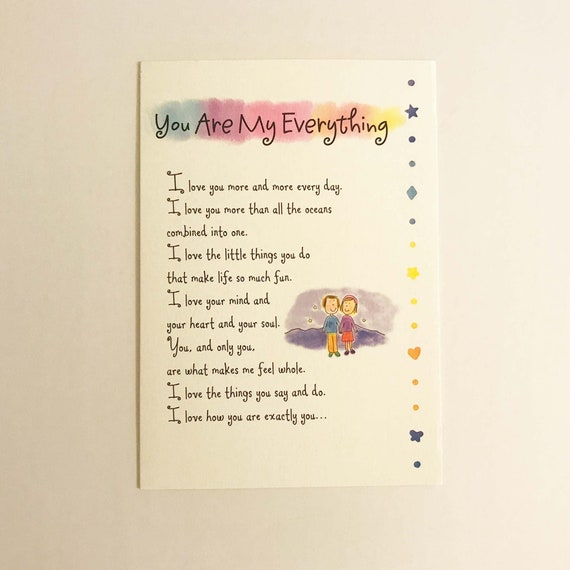 You Are My Everything
I love you more and more every day.
I love you more than all the oceans
combined into one.
I love the little things you do
that make life so much fun.
I love your mind and
your heart and your soul.
You, and only you,
are what makes me feel whole.
I love the things you say and do.
I love how you are exactly you...